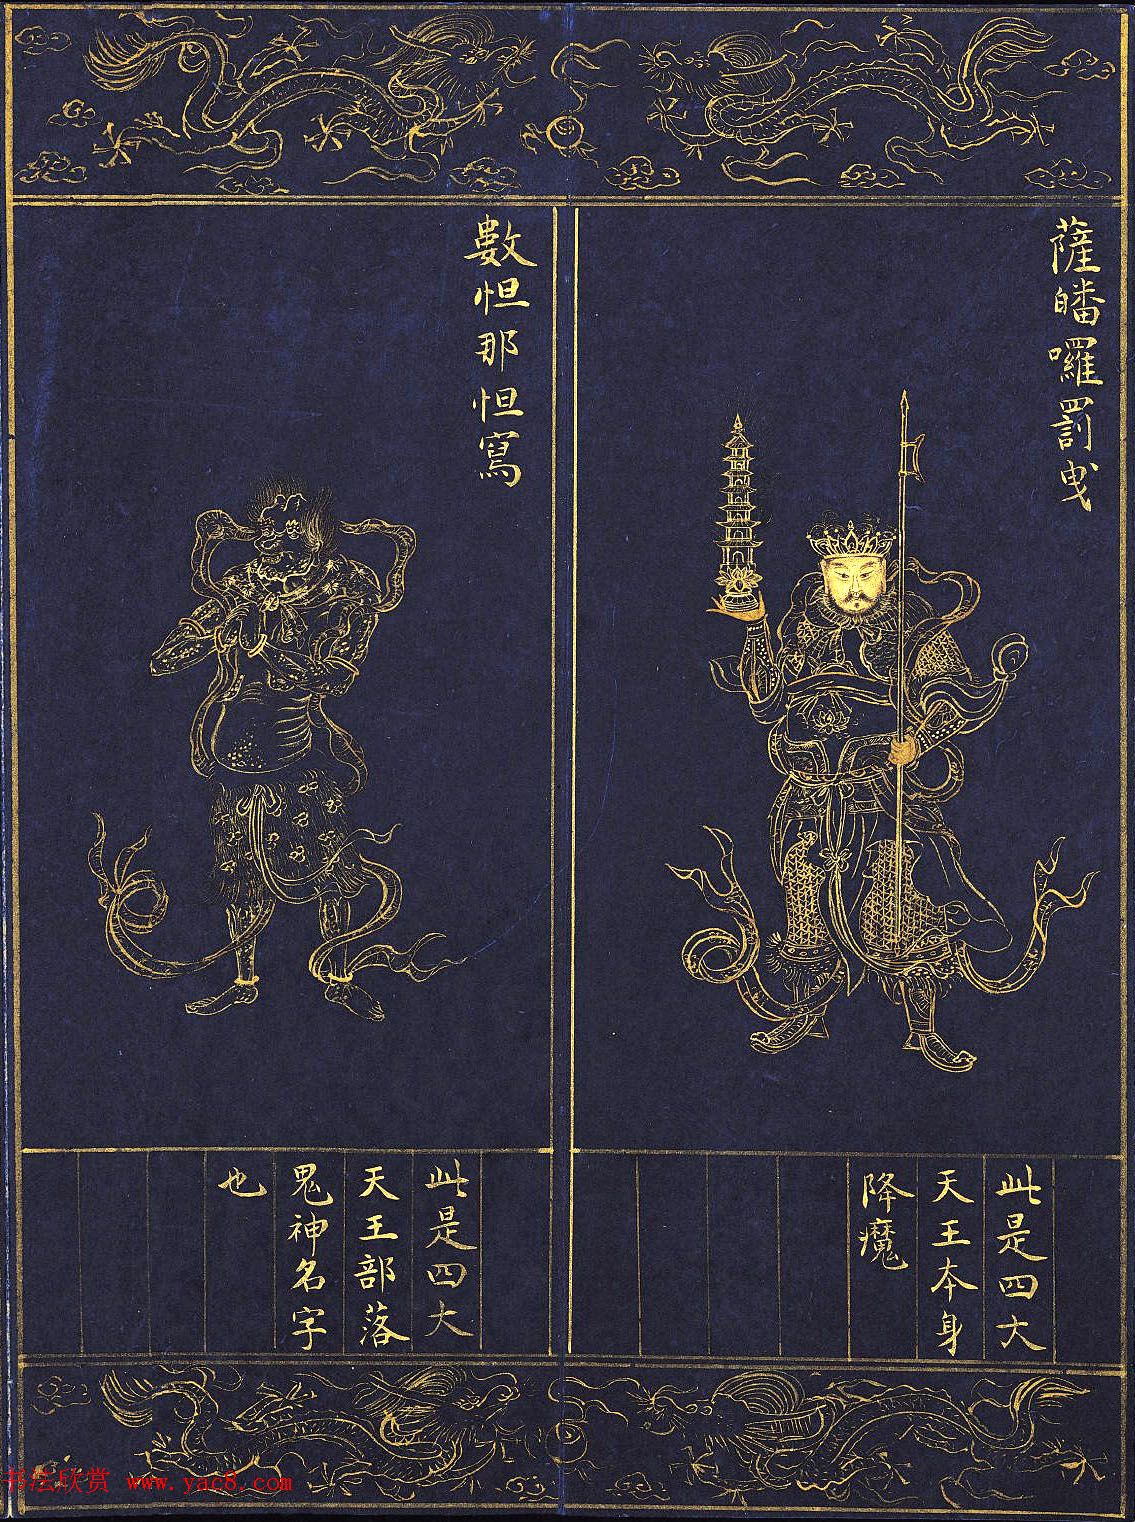 薩皤囉罰曳
此是四大
天王本身
降魔
數怛那怛寫
此是四大
天王部落
鬼神名字
也
书法欣赏 www.yac8.com